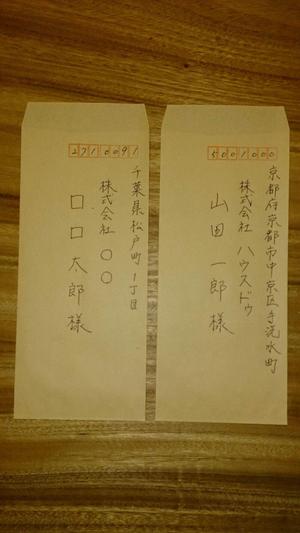 2710091
千葉県松戸町1丁目
株式会社〇〇
口口太郎様
5001000
京都府京都市中京区手洗水町
株式会社ハウスドゥ
山田一郎様